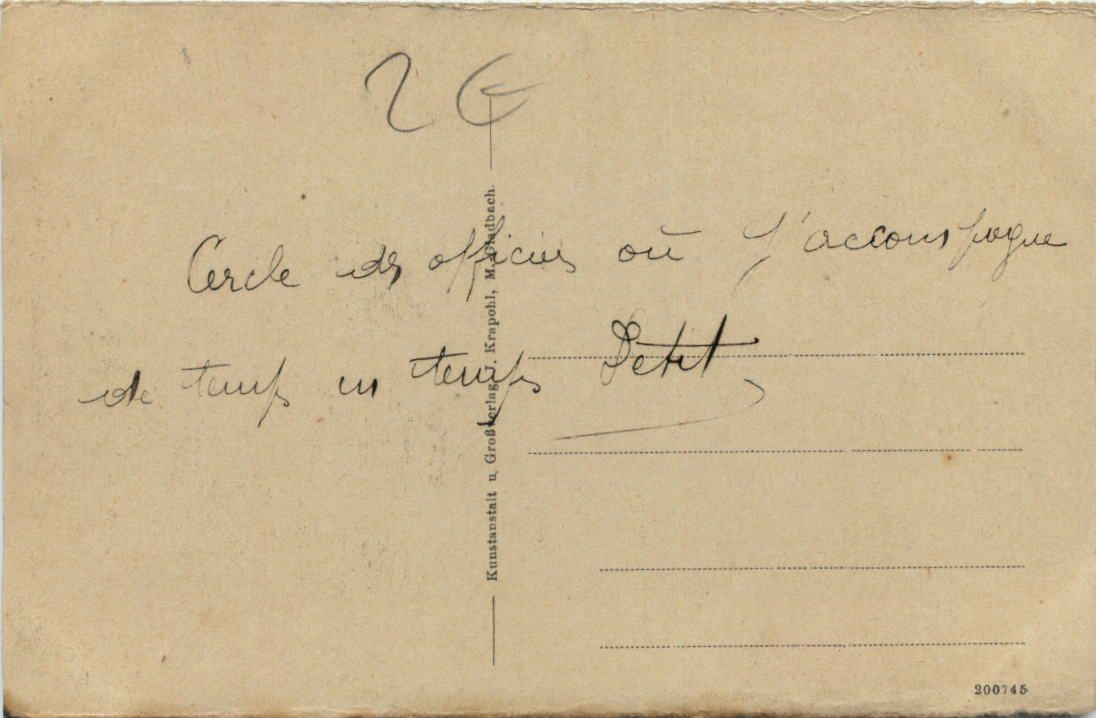 2 €
Cercle des officiers où j'accompagne
de temps en temps Petit
Kunstanstalt u. Großverlag J. Krapohl, M.-Gladbach.
200745